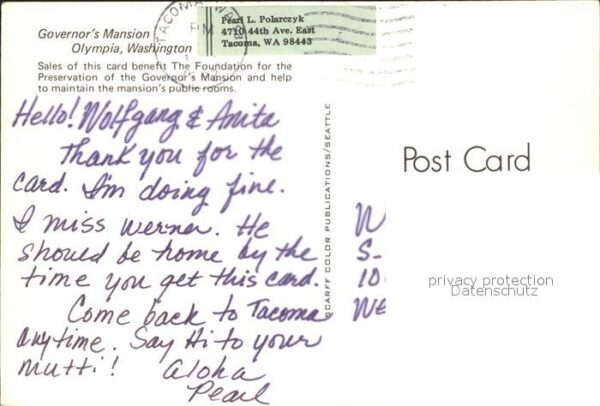 Governor's Mansion
Olympia, Washington
Sales of this card benefit The Foundation for the
Preservation of the Governor's Mansion and help
to maintain the mansion's public rooms.
TACOMA, W
PM
Pearl L. Polarczyk
4710 44th Ave. East
Tacoma, WA 98443
Hello! Wolfgang & Anita
Thank you for the
card. I'm doing fine.
I miss Werner. He
should be home by the
time you get this card.
Come back to Tacoma
anytime. Say Hi to your
mutti! Aloha
Pearl
SCARFF COLOR PUBLICATIONS/SEATTLE
Post Card
W
S-
10
WE
privacy protection
Datenschutz